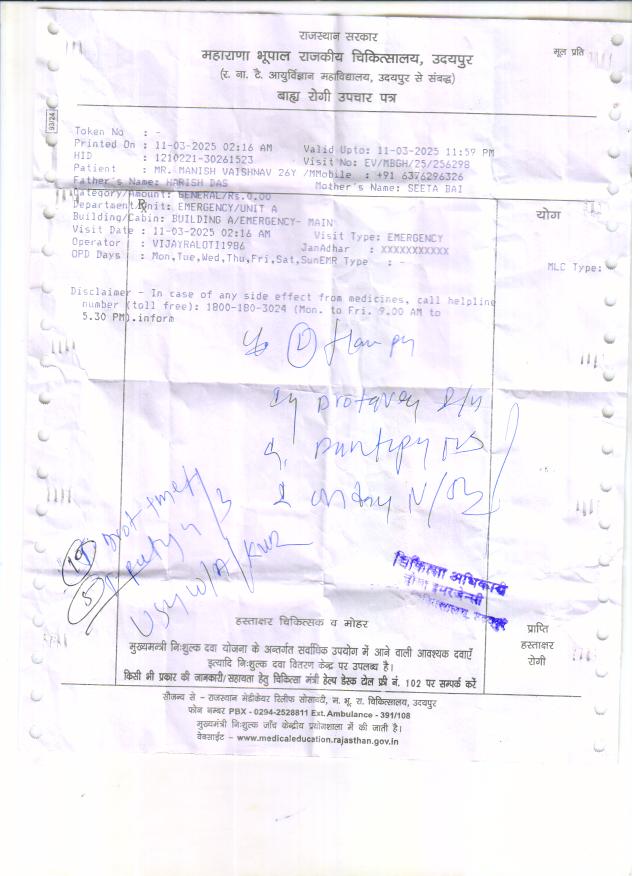 राजस्थान सरकार
महाराणा भूपाल राजकीय चिकित्सालय, उदयपुर
मूल प्रति
(र. ना. टै. आयुर्विज्ञान महाविद्यालय, उदयपुर से संबद्ध)
बाह्य रोगी उपचार पत्र
93/24
Token No : -
Printed On : 11-03-2025 02:16 AM Valid Upto: 11-03-2025 11:59 PM
HID : 1210221-30261523 Visit No: EV/MBGH/25/256298
Patient : MR. MANISH VAISHNAV 26Y /MMobile : +91 6376296326
Father's Name: HARISH DAS Mother's Name: SEETA BAI
Category/Amount: GENERAL/Rs.0.00
Department/Unit: EMERGENCY/UNIT A
योग
Building/Cabin: BUILDING A/EMERGENCY- MAIN
Visit Date : 11-03-2025 02:16 AM Visit Type: EMERGENCY
Operator : VIJAYRALOTI1986 JanAdhar : XXXXXXXXXXX
OPD Days : Mon,Tue,Wed,Thu,Fri,Sat,SunEMR Type : -
MLC Type:
Disclaimer - In case of any side effect from medicines, call helpline
number (toll free): 1800-180-3024 (Mon. to Fri. 9.00 AM to
5.30 PM).inform
चिकित्सा अधिकारी
हस्ताक्षर चिकित्सक व मोहर
प्राप्ति
हस्ताक्षर
रोगी
मुख्यमन्त्री निःशुल्क दवा योजना के अन्तर्गत सर्वाधिक उपयोग में आने वाली आवश्यक दवाएँ
इत्यादि निःशुल्क दवा वितरण केन्द्र पर उपलब्ध है।
किसी भी प्रकार की जानकारी/सहायता हेतु चिकित्सा मंत्री हेल्प डेस्क टोल फ्री नं. 102 पर सम्पर्क करें
सौजन्य से - राजस्थान मेडीकेयर रिलीफ सोसायटी, म. भू. रा. चिकित्सालय, उदयपुर
फोन नम्बर PBX - 0294-2528811 Ext. Ambulance - 391/108
मुख्यमन्त्री निःशुल्क जाँच केन्द्रीय प्रयोगशाला में की जाती है।
वेबसाईट - www.medicaleducation.rajasthan.gov.in